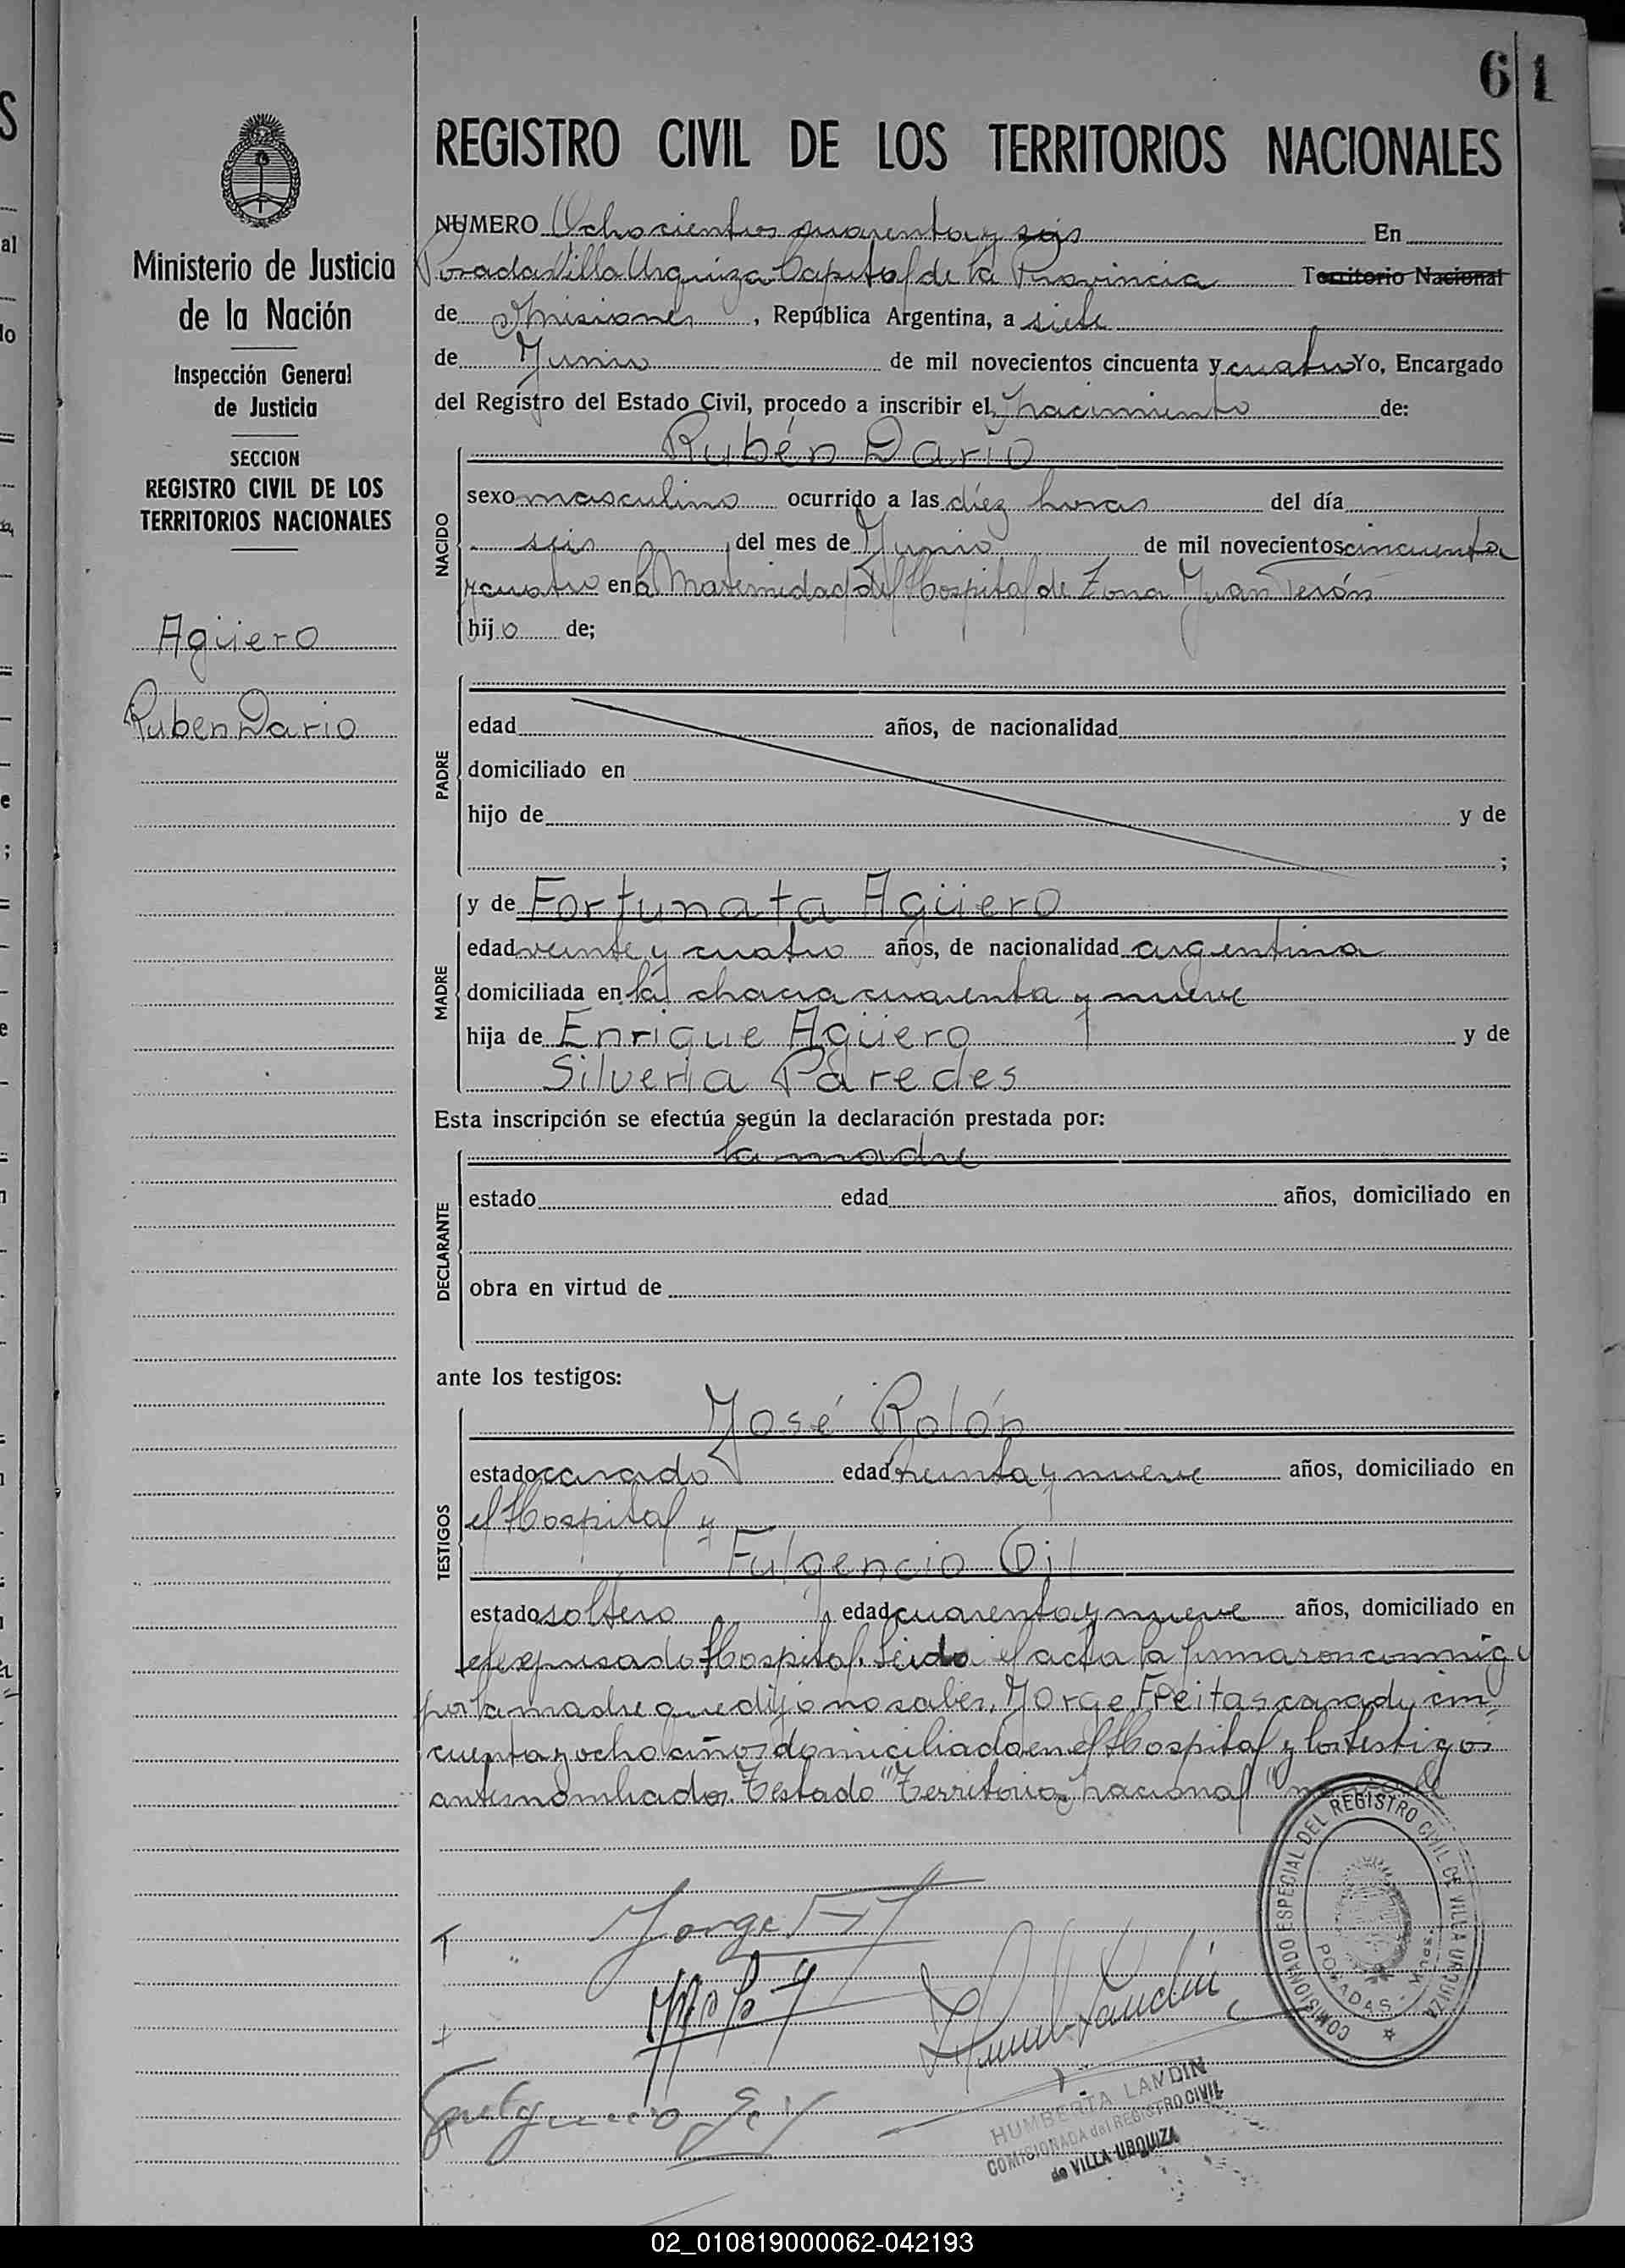 61
REGISTRO CIVIL DE LOS TERRITORIOS NACIONALES
Ministerio de Justicia
de la Nación
Inspección General
de Justicia
SECCION
REGISTRO CIVIL DE LOS
TERRITORIOS NACIONALES
Agüero
Ruben Dario
NUMERO Ochocientos cuarenta y seis En
Posadas Villa Urquiza Capital de la Provincia Territorio Nacional
de Misiones, República Argentina, a siete
de Junio de mil novecientos cincuenta y cuatro Yo, Encargado
del Registro del Estado Civil, procedo a inscribir el nacimiento de:
Rubén Dario
NACIDO
sexo masculino ocurrido a las diéz horas del día
seis del mes de Junio de mil novecientos cincuenta
y cuatro en la Maternidad del Hospital de Zona Juan Perón
hijo de;
PADRE
edad años, de nacionalidad
domiciliado en
hijo de y de
;
MADRE
y de Fortunata Agüero
edad veinte y cuatro años, de nacionalidad argentina
domiciliada en la chacra cuarenta y nueve
hija de Enrique Agüero y de
Silveria Paredes
Esta inscripción se efectúa según la declaración prestada por:
la madre
DECLARANTE
estado edad años, domiciliado en
obra en virtud de
ante los testigos:
TESTIGOS
José Rolón
estado casado edad treinta y nueve años, domiciliado en
el Hospital y
Fulgencio Gil
estado soltero edad cuarenta y nueve años, domiciliado en
el expresado Hospital. Leida el acta la firmaron conmigo
por la madre que dijo no saber, Jorge Freitas casado, cin
cuenta y ocho años domiciliado en el Hospital y los testigos
antes nombrados. Testado "Territorio nacional"
Jorge
Fulgencio Gil
COMISIONADO ESPECIAL DEL REGISTRO CIVIL DE VILLA URQUIZA
POSADAS
HUMBERTA LANDIN
COMISIONADA del REGISTRO CIVIL
de VILLA URQUIZA
02_010819000062-042193